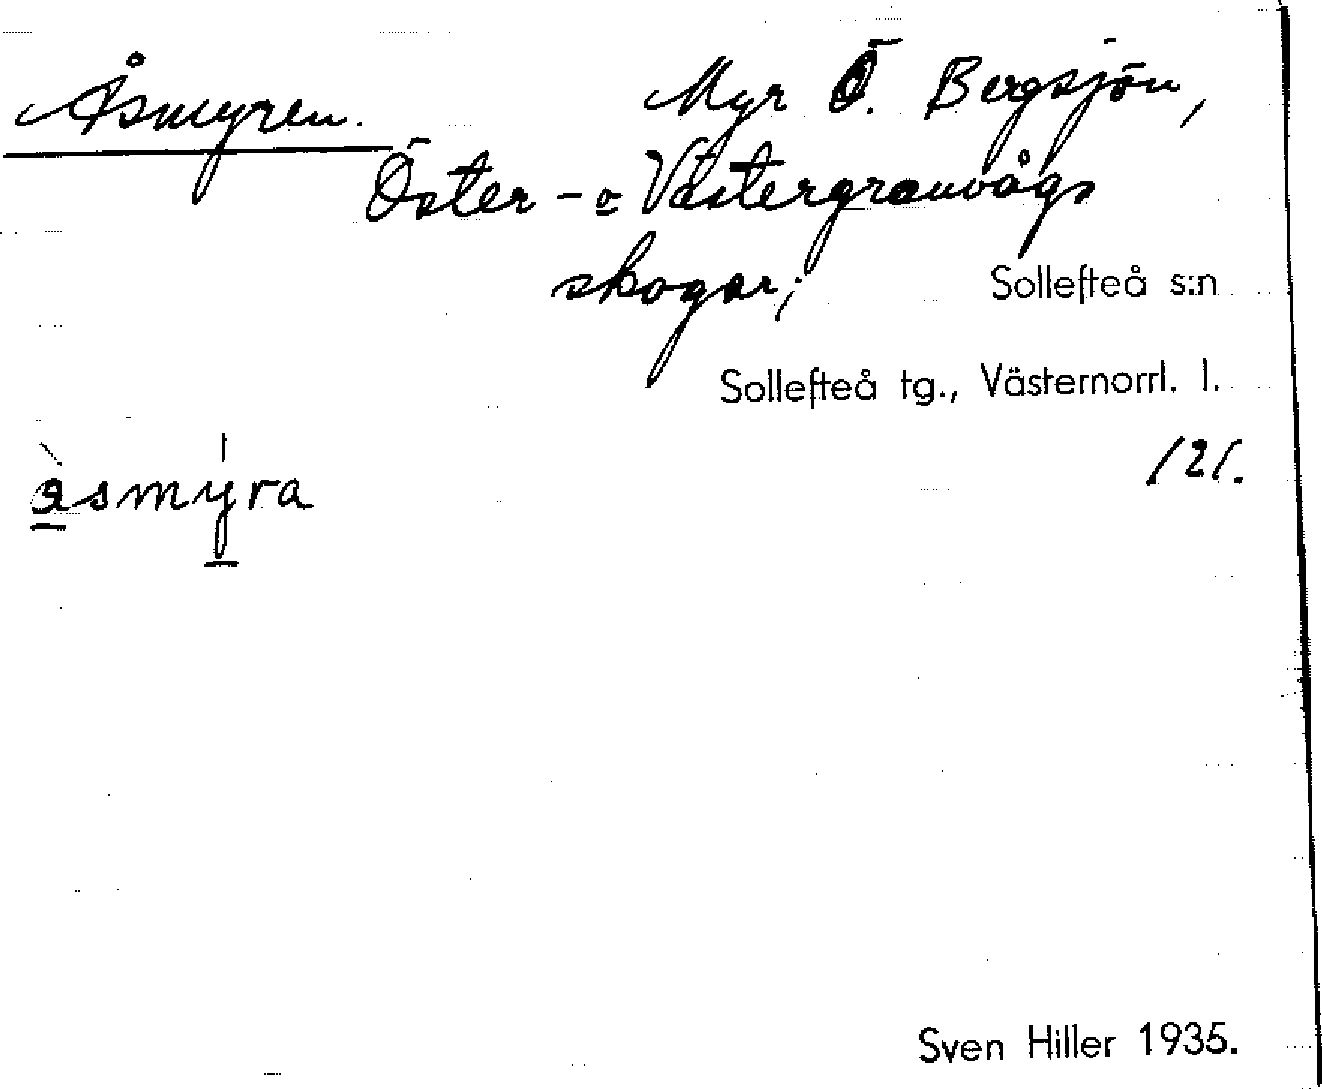 Åsmyren.
Myr Ö. Bergsjön,
Öster- o Västergranvågs
skogar;
Sollefteå s:n
Sollefteå tg., Västernorrl. l.
121.
åsmyra
Sven Hiller 1935.